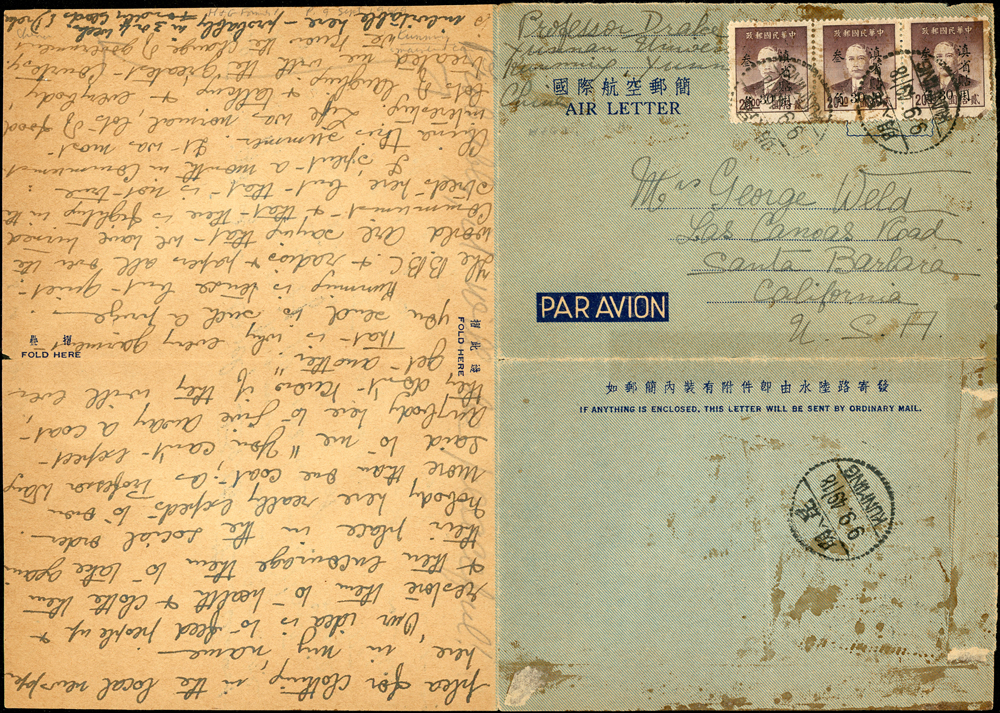 Professor Drake
Yunnan
Kunming, Yunnan
China
國際航空郵簡
AIR LETTER
中華民國郵政
中華民國郵政
中華民國郵政
KUNMING
9.9.49/18
KUNMING
9.9.49/18
Mrs George Weld
Las Canoas Road
Santa Barbara
California
U. S. A
PAR AVION
如郵簡內裝有附件卽由水陸路寄發
IF ANYTHING IS ENCLOSED, THIS LETTER WILL BE SENT BY ORDINARY MAIL.
KUNMING
9.9.49/18
FOLD HERE
FOLD HERE
plea for clothing, in the local newspaper
here in my name —
"Our idea is to feed people up &
restore them to health & clothe them
& then encourage them to take again
their place in the social order.
nobody here really expects to own
more than one coat — as Professor Wang
said to me "You can't expect
anybody here to give away a coat —
they don't know if they will ever
get another."
That is why every garment
you send is such a prize —
Kunming is tense but quiet —
The BBC & radios & papers all over the
world are saying that we have turned
Communist & that there is fighting in the
streets here, but that is not true
I spent a month in Communist
China this summer. It was most
interesting. Life was normal, lot of food
lot of laughing & talking & everybody
treated me with the greatest courtesy.
We know the change of government
is inevitable here — probably
in 3 or 4 weeks